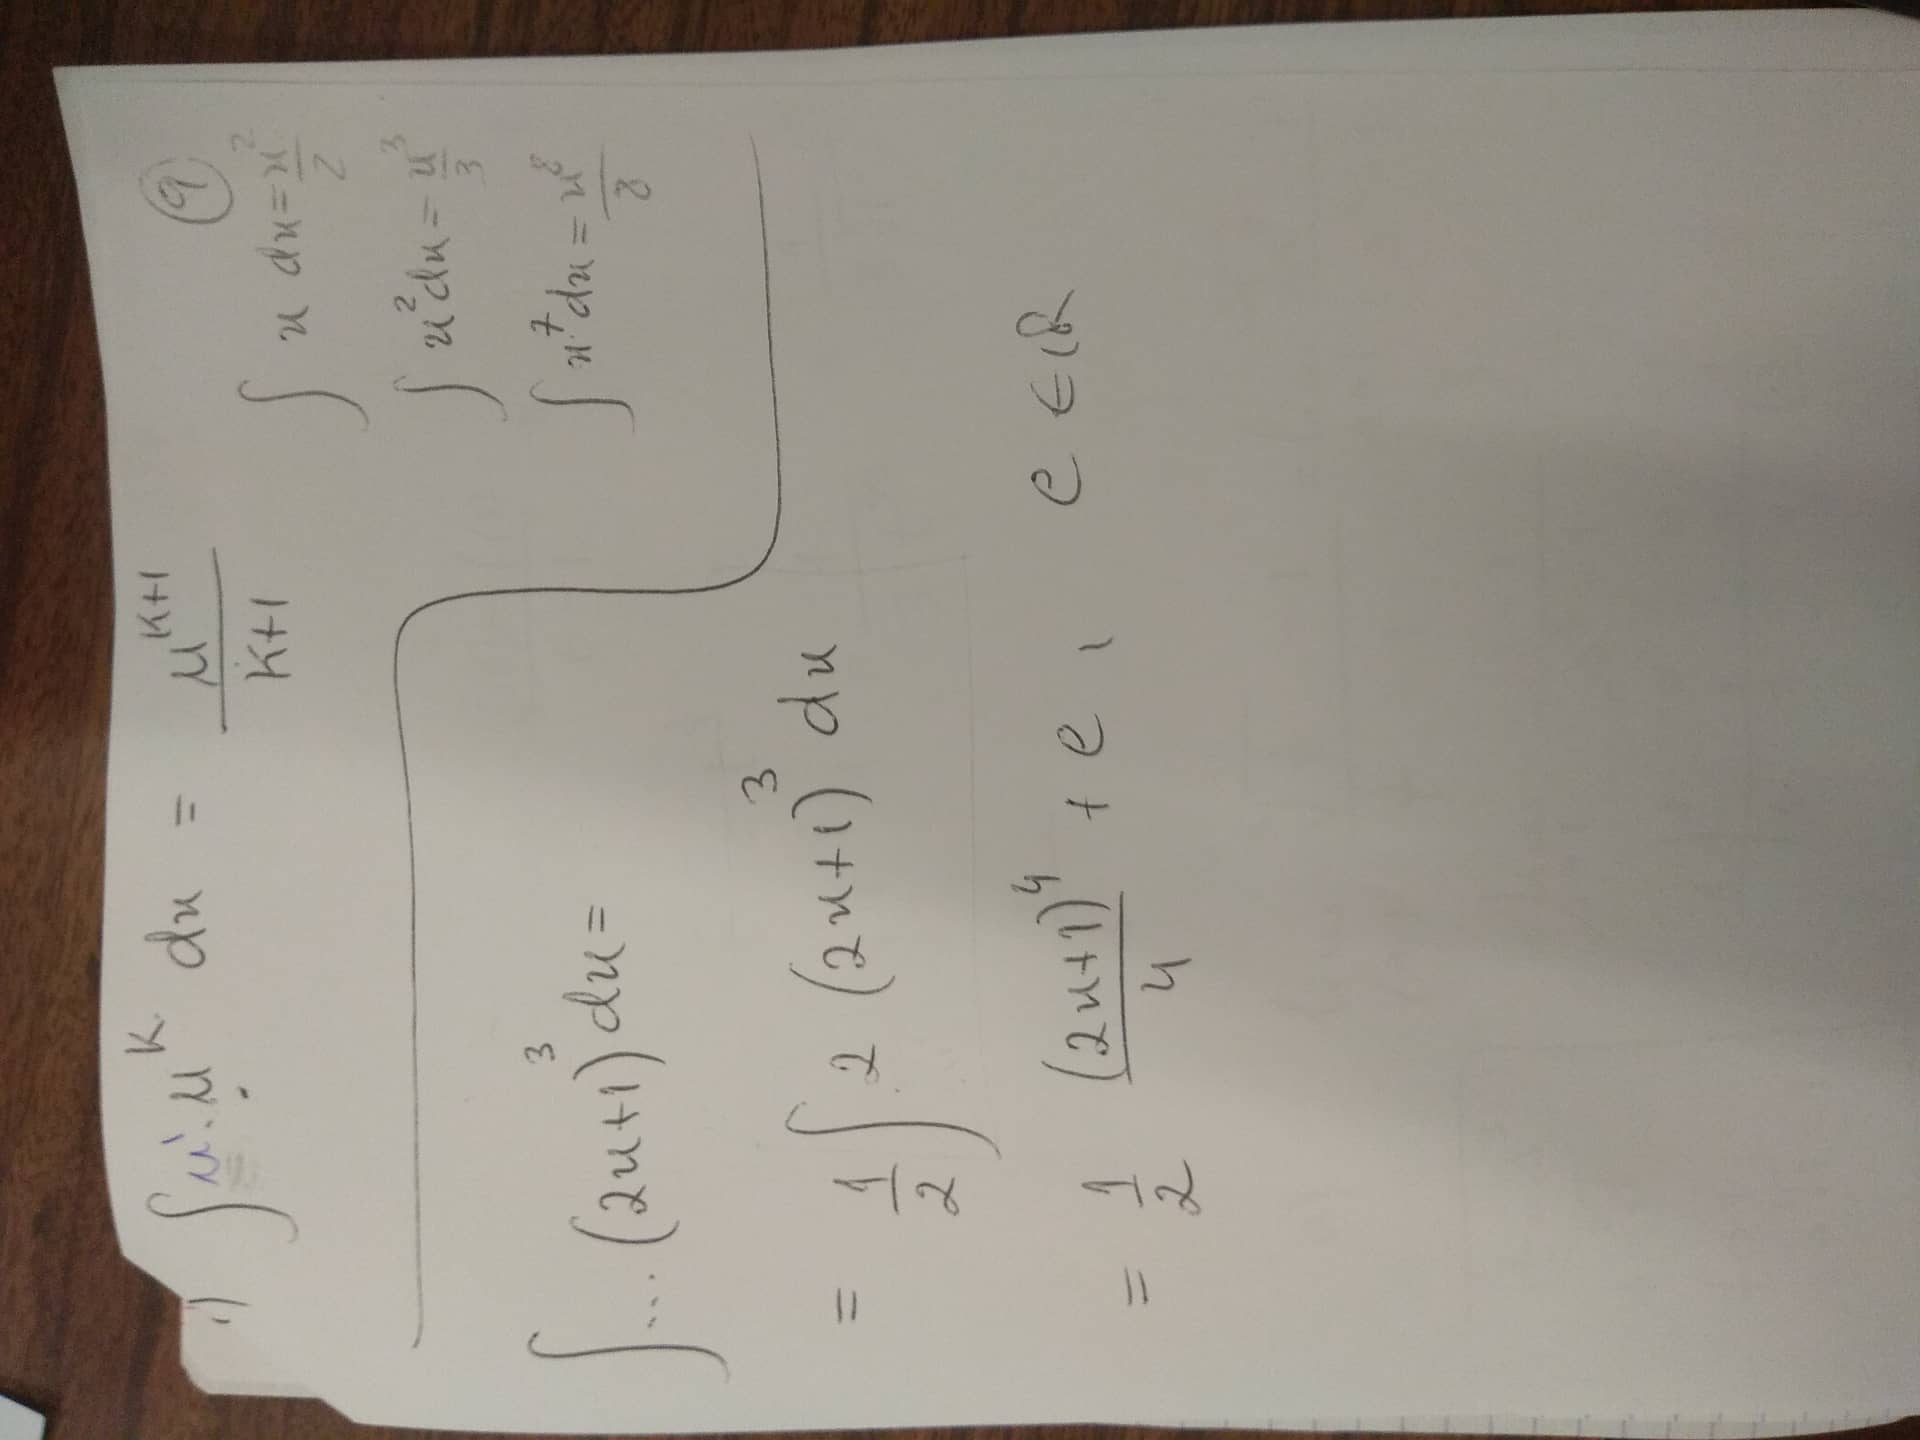 1) ∫ u'. u^k dx = u^(k+1)/(k+1)
9
∫ x dx = x^2/2
∫ x^2 dx = x^3/3
∫ x^7 dx = x^8/8
∫... (2x+1)^3 dx =
= 1/2 ∫ 2 (2x+1)^3 dx
= 1/2 (2x+1)^4/4 + c , c ∈ ℝ